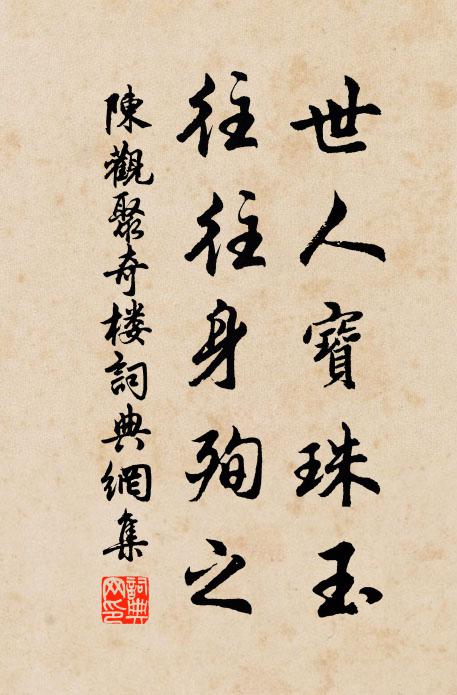 世人寶珠玉
往往身殉之
陳觀聚奇楼詞典網集
詞典网印